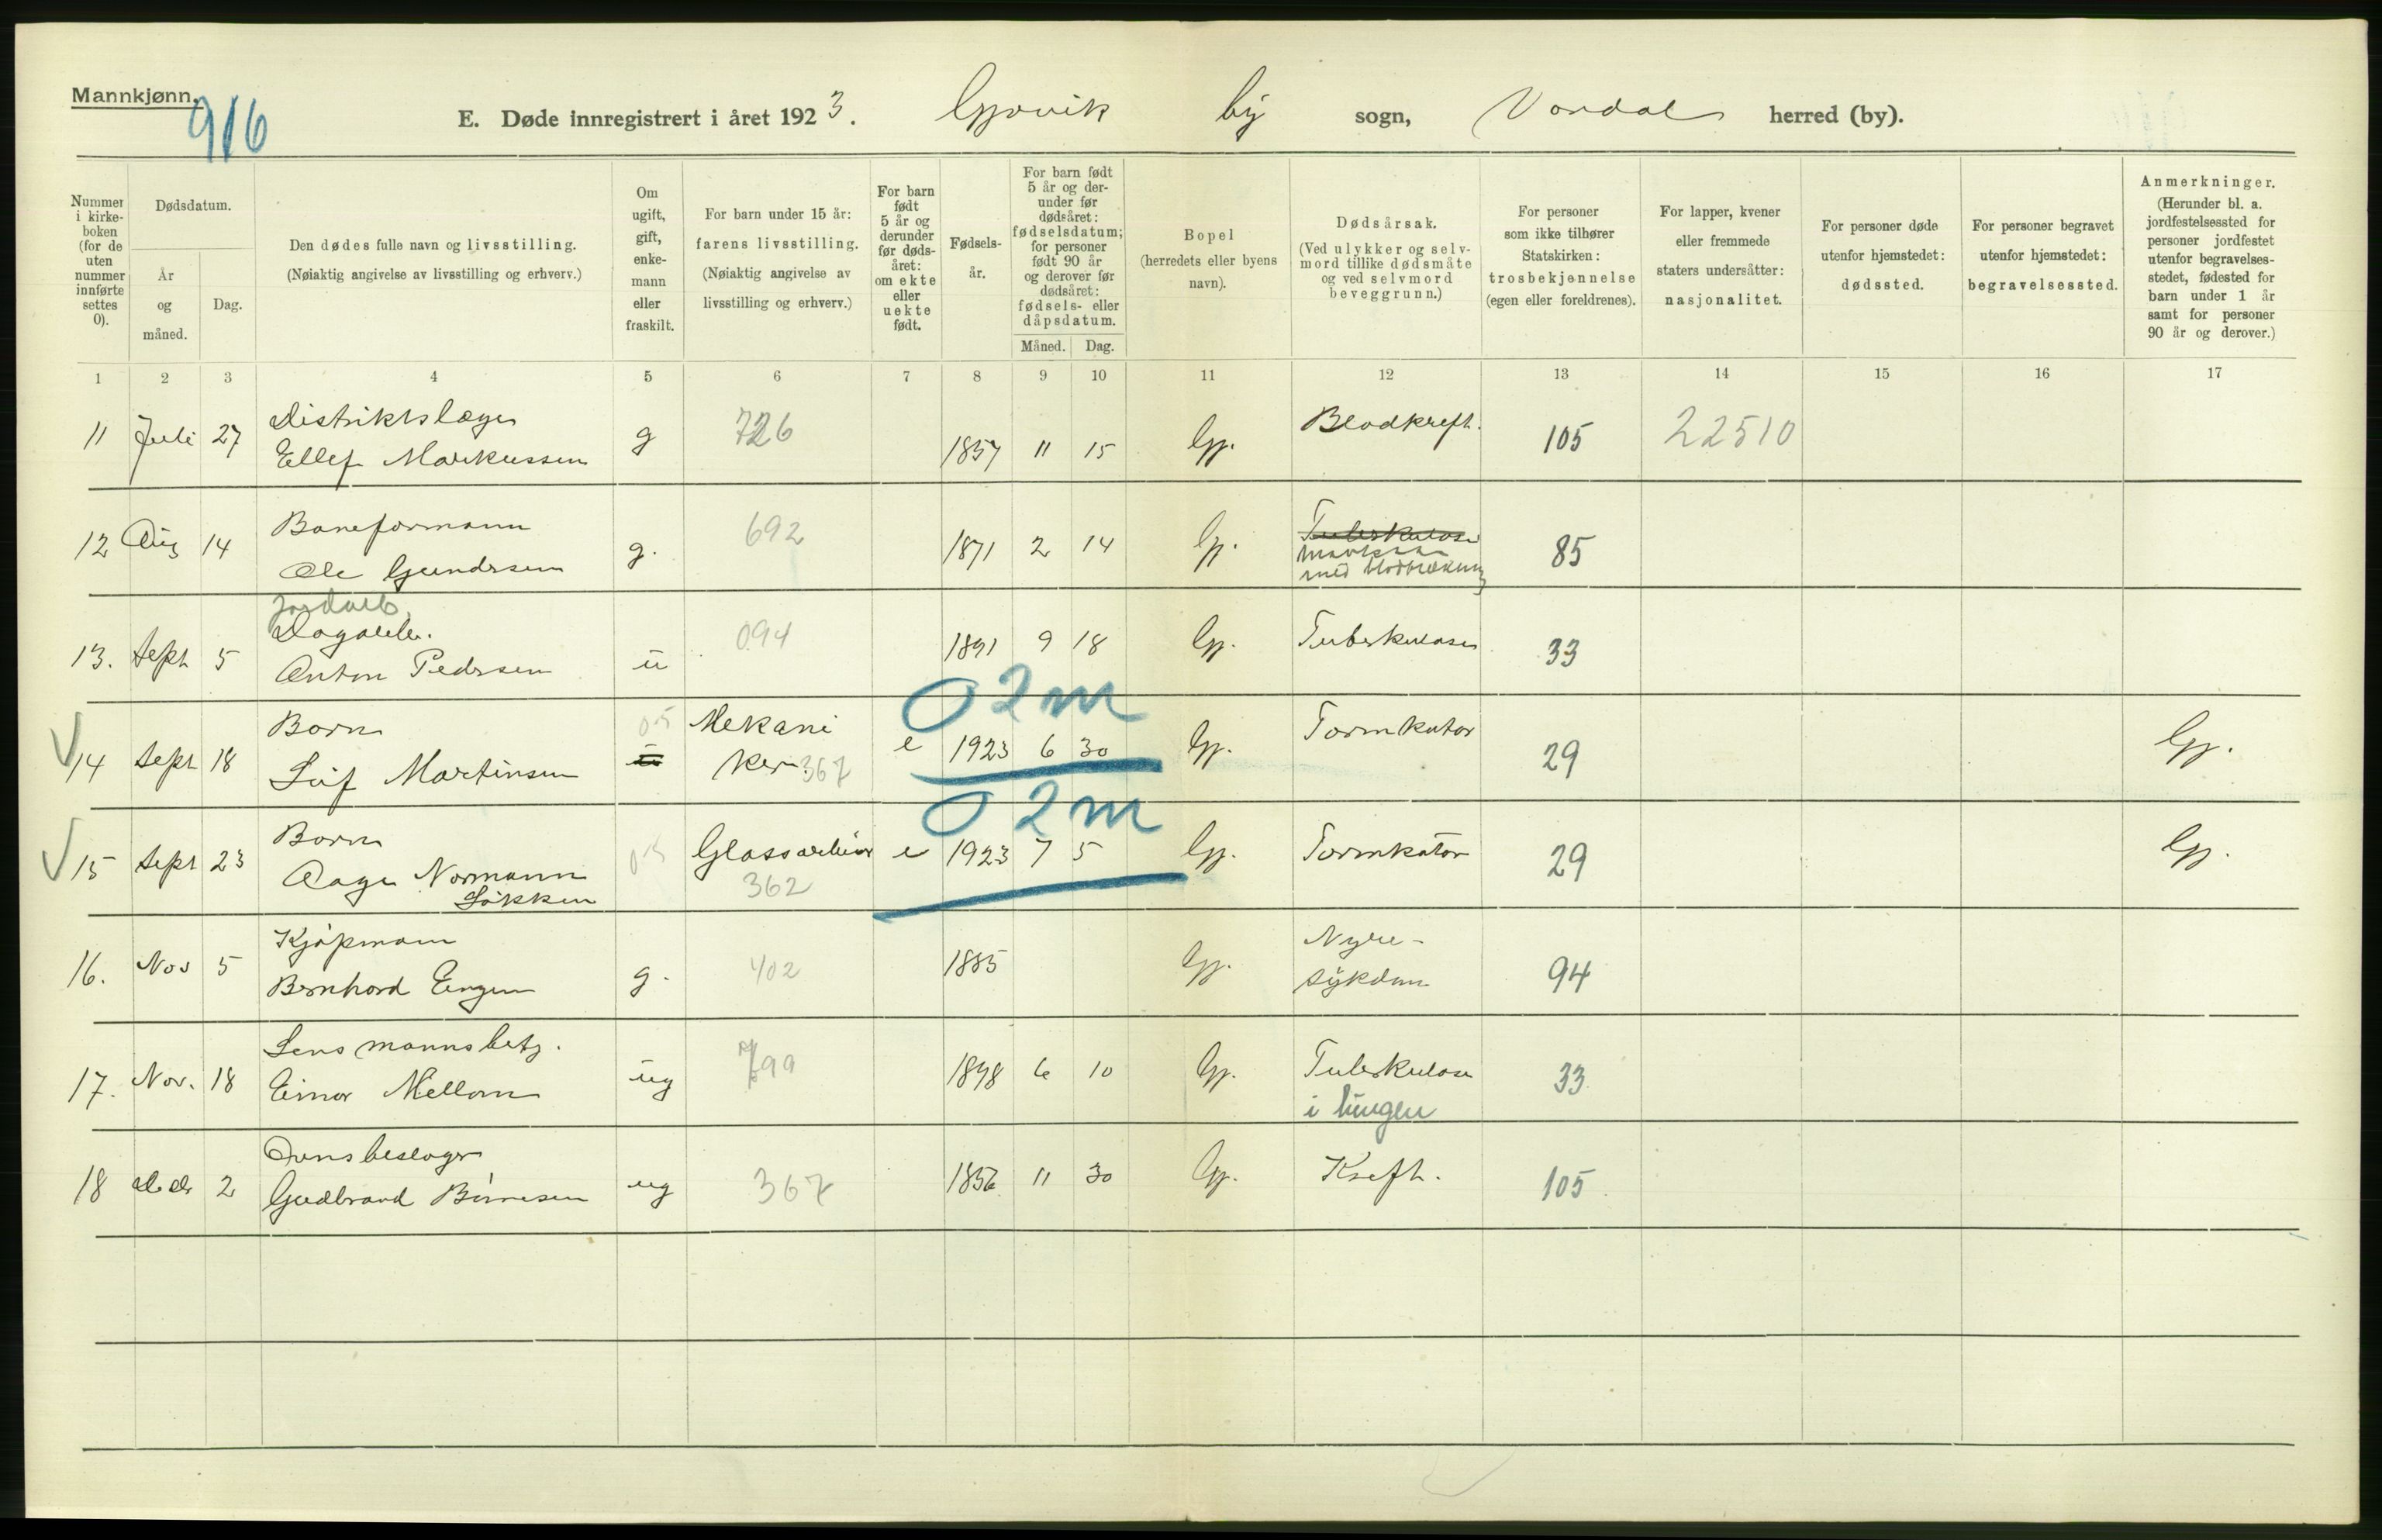 Mannkjønn.
916
E. Døde innregistrert i året 1923. Gjøvik by sogn, Vardal herred (by).
Nummer i kirkeboken (for de uten nummer innførte settes 0).
Dødsdatum.
År og måned.
Dag.
Den dødes fulle navn og livsstilling.
(Nøiaktig angivelse av livsstilling og erhverv.)
Om ugift, gift, enkemann eller fraskilt.
For barn under 15 år: farens livsstilling.
(Nøiaktig angivelse av livsstilling og erhverv.)
For barn født 5 år og derunder før dødsåret: om ekte eller uekte født.
Fødselsår.
For barn født 5 år og derunder før dødsåret: fødselsdatum; for personer født 90 år og derover før dødsåret: fødsels- eller dåpsdatum.
Måned. Dag.
Bopel (herredets eller byens navn).
Dødsårsak.
(Ved ulykker og selvmord tillike dødsmåte og ved selvmord beveggrunn.)
For personer som ikke tilhører Statskirken: trosbekjennelse (egen eller foreldrenes).
For lapper, kvener eller fremmede staters undersåtter: nasjonalitet.
For personer døde utenfor hjemstedet: dødssted.
For personer begravet utenfor hjemstedet: begravelsessted.
Anmerkninger.
(Herunder bl. a. jordfestelsessted for personer jordfestet utenfor begravelsesstedet, fødested for barn under 1 år samt for personer 90 år og derover.)
1 2 3 4 5 6 7 8 9 10 11 12 13 14 15 16 17
11 Juli 27 Distriktslæge Ellef Markussen g 726 1857 11 15 Gj. Blodkreft. 105 22510
12 Aug 14 Baneformann Ole Gundersen g. 692 1871 2 14 Gj. Tuberkulose med blodbrækning 85
13. Sept 5 Jordarb. Dagarb. Anton Pedersen u 094 1891 9 18 Gj. Tuberkulose 33
02m
14 Sept 18 Barn Leif Martinsen u 05 Mekaniker 367 e 1923 6 30 Gj. Tarmkatar 29 Gj.
02m
15 Sept 23 Barn Aage Normann Løkken 05 Glassarbeider 362 e 1923 7 5 Gj. Tarmkatar 29 Gj.
16. Nov 5 Kjøpmann Bernhard Engen g. 402 1885 Gj. Nyresykdom 94
17. Nov. 18 Lensmannsbetj. Einar Mellom ug 799 1898 6 10 Gj. Tuberkulose i lungen 33
18 Des 2 Gudbrand ug 367 1856 11 30 Gj. Kreft. 105